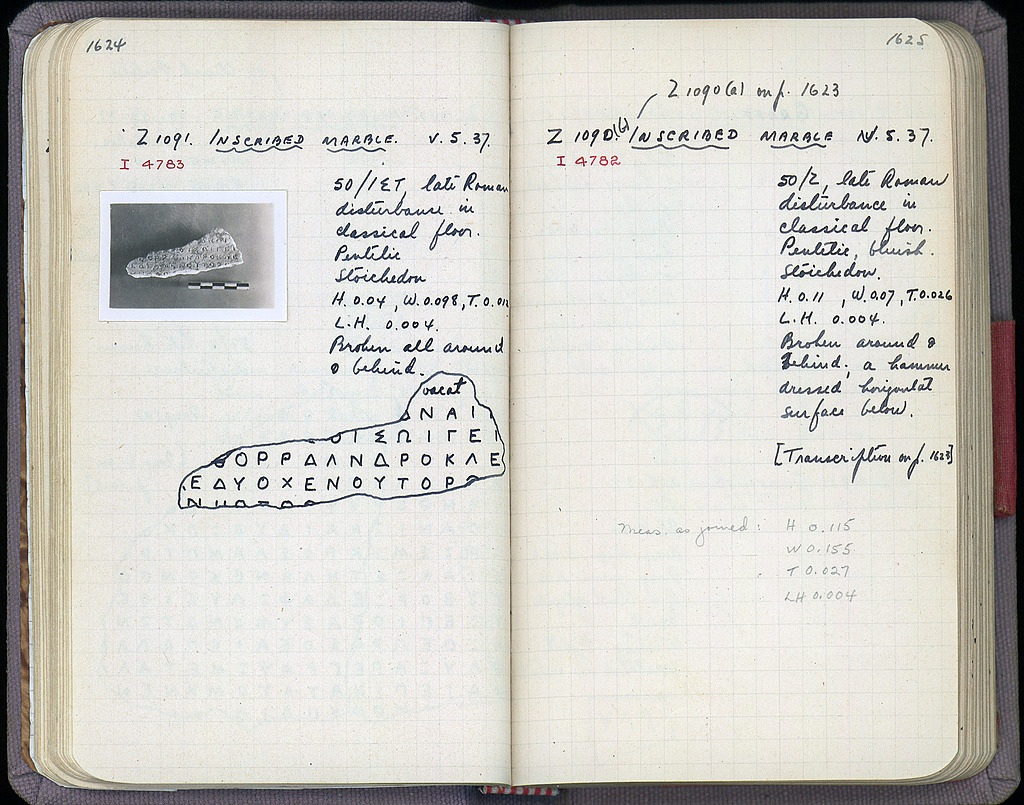 1624
Z 1091. INSCRIBED MARBLE. V. 5. 37.
I 4783
50/ΙΣΤ, late Roman
disturbance in
classical floor.
Pentelic
Stoichedon
H. 0.04, W. 0.098, T. 0.012
L.H. 0.004.
Broken all around
& behind.
vacat
ΝΑΙ
ΟΙΣΩΙΓΕΙ
ΟΡΡΔΛΝΔΡΟΚΛΕ
ΕΔΥΟΧΕΝΟΥΤΟΡ
1625
Z 1090(a) on p. 1623
Z 1090(b) INSCRIBED MARBLE V. 5. 37.
I 4782
50/Ζ, late Roman
disturbance in
classical floor.
Pentelic, bluish.
Stoichedon.
H. 0.11, W. 0.07, T. 0.026
L.H. 0.004.
Broken around &
behind; a hammer
dressed horizontal
surface below.
[Transcription on p. 1623]
Meas. as joined: H 0.115
W 0.155
T 0.027
LH 0.004